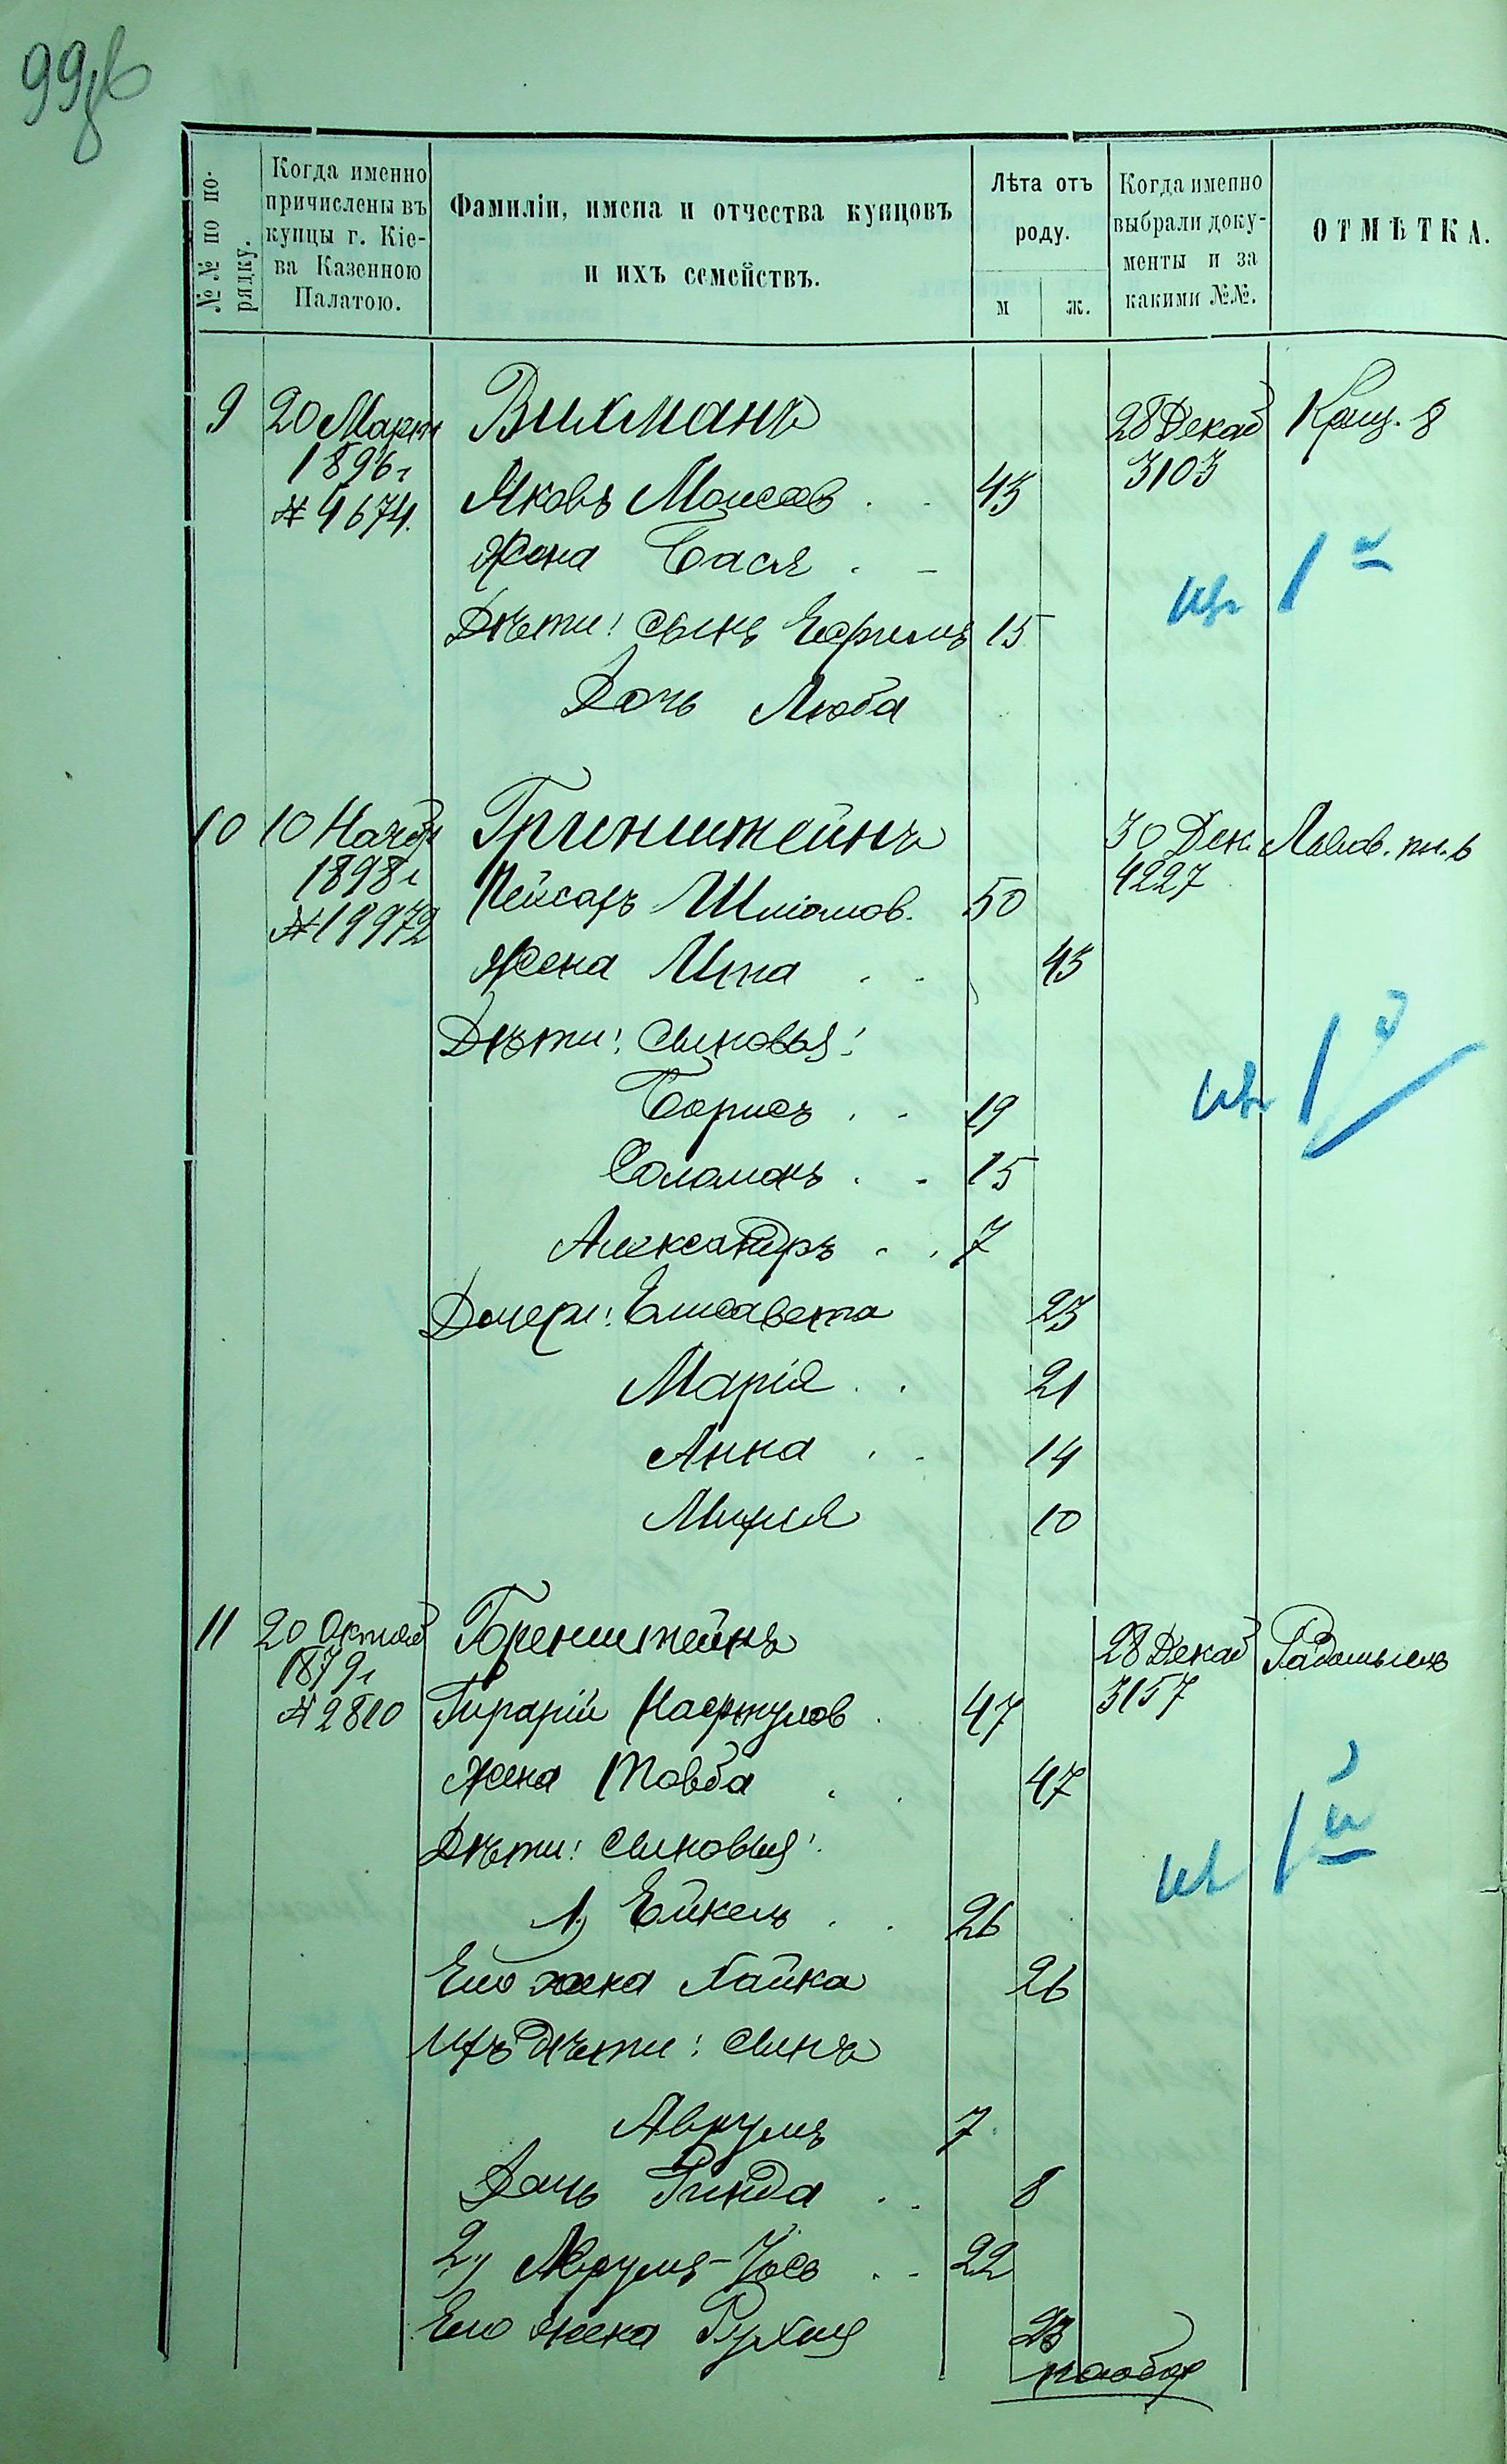 99об
№№ по по-
рядку.
Когда именно
причислены въ
купцы г. Кіе-
ва Казенною
Палатою.
Фамиліи, имена и отчества купцовъ
и ихъ семействъ.
Лѣта отъ
роду.
м ж.
Когда именно
выбрали доку-
менты и за
какими №№.
ОТМѢТКА.
9 20 Марта Вихманъ 28 Декаб
1896г 3103
№ 4674. Яковъ Моисеев 45
Жена Бася
Дѣти: сынъ Ефримъ 15
1й
Дочь Люба
10 10 Нояб Гринштейнъ 30 Дек.
1898г 4227
№ 19972 Пейсахъ Шліомов. 50
Жена Ита 45
Дѣти: сыновья:
Борисъ 19
1й
Соломонъ 15
Александръ 7
Дочери: Елисавета 23
Марія 21
Анна 14
Мирля 10
11 20 Октяб Горенштейнъ 28 Декаб Радомысль
1879г 3157
№ 2810 Нафтулов 47
жена Товба 47
Дѣти: сыновья:
1й
1) Ейкель 26
Его жена Хайка 26
Ихъ дѣти: сынъ
Аврумъ 7
Дочь Гинда 8
2) Аврумъ-Іось 22
Его жена Рухля 23
на об